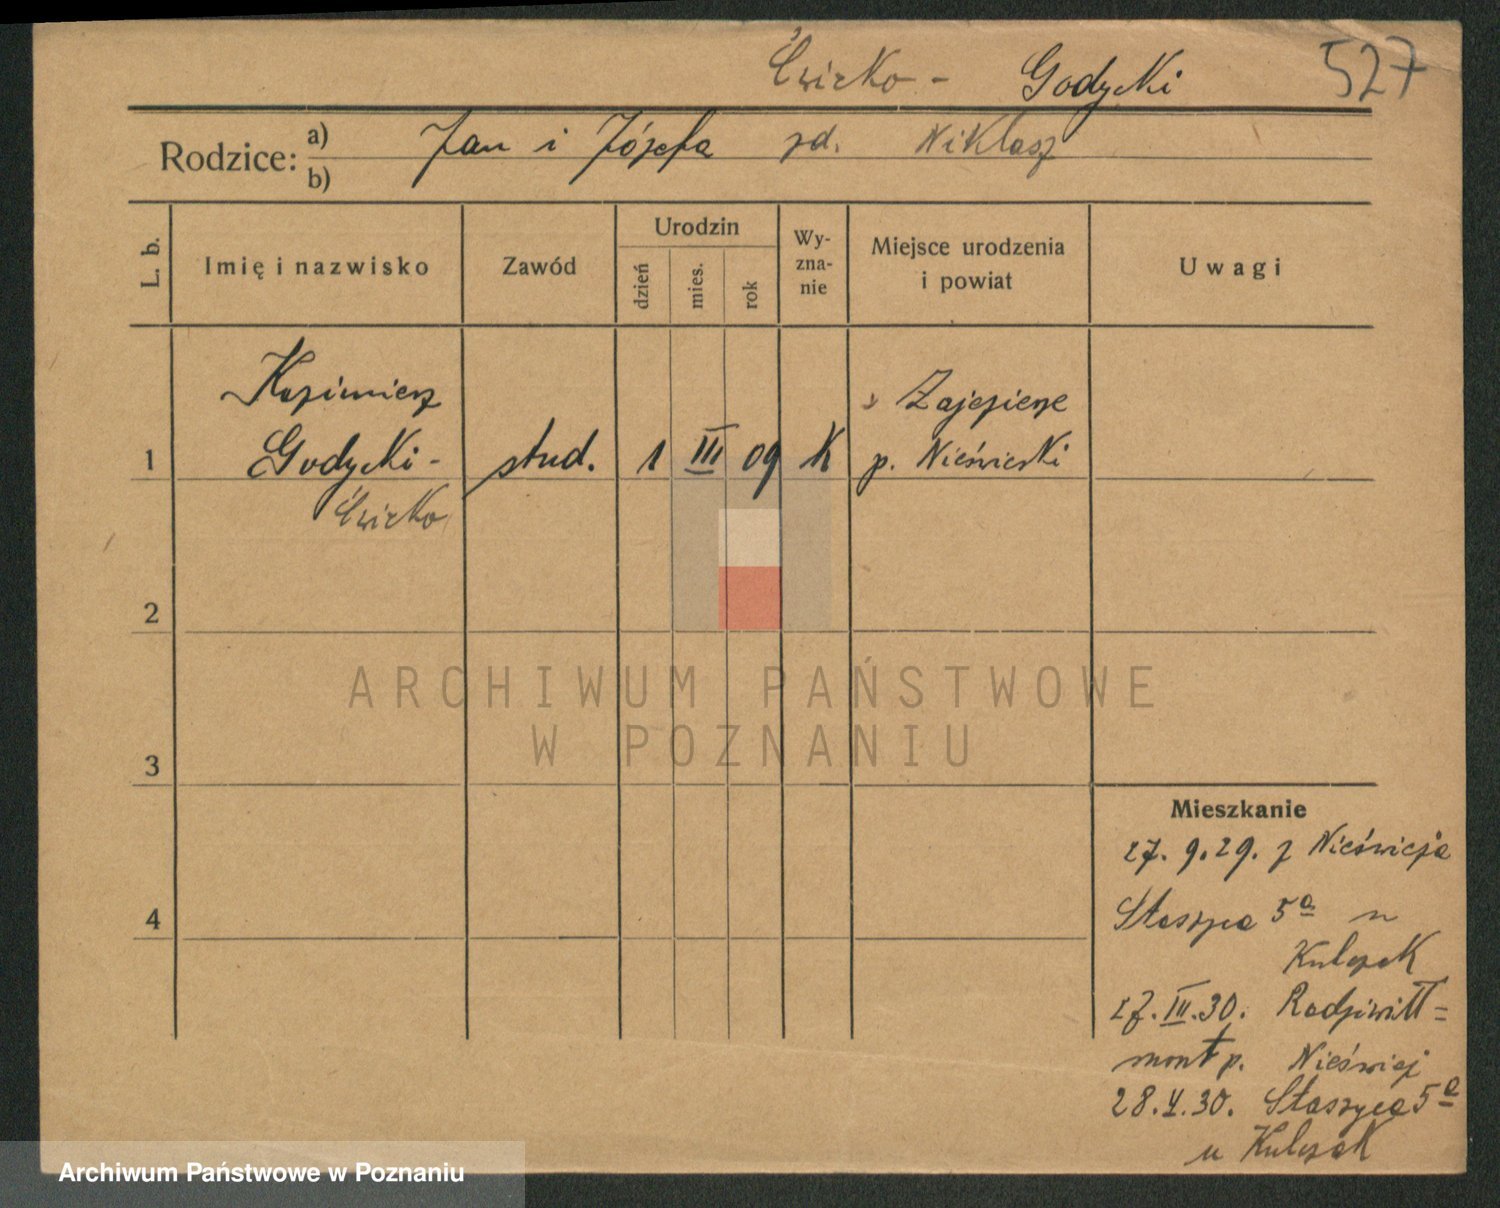 Ćwirko - Godycki 527
Rodzice: a) Jan i Józefa zd. Niklasz
b)
L. b. Imię i nazwisko Zawód Urodzin dzień mies. rok Wy-zna-nie Miejsce urodzenia i powiat Uwagi
Kazimierz Zajezierze
1 Godycki - stud. 1 III 09 K p. Nieświeski
Ćwirko
2
ARCHIWUM PAŃSTWOWE
W POZNANIU
3
Mieszkanie
27. 9. 29. z Nieświeża
4 Staszyca 5a u
Kulczak
17. III. 30. Radziwiłł=
mont p. Nieśwież
28. V. 30. Staszyca 5a
u Kulczak
Archiwum Państwowe w Poznaniu